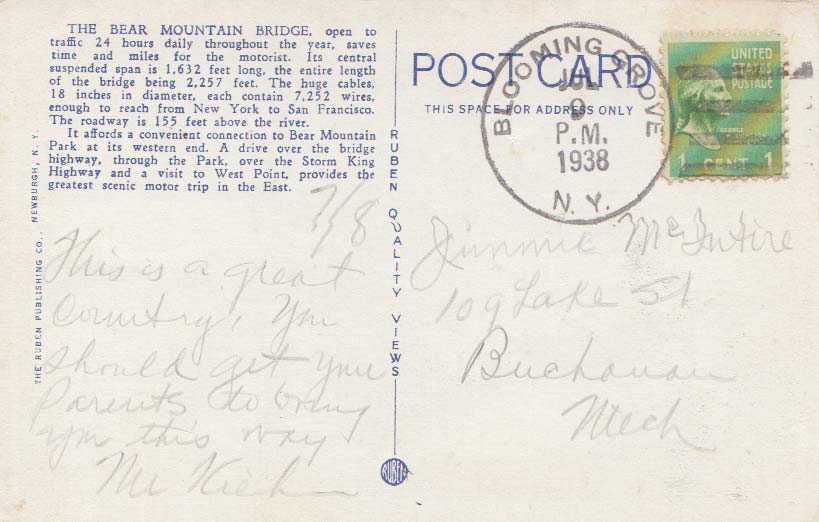 THE BEAR MOUNTAIN BRIDGE, open to
traffic 24 hours daily throughout the year, saves
time and miles for the motorist. Its central
suspended span is 1,632 feet long, the entire length
of the bridge being 2,257 feet. The huge cables,
18 inches in diameter, each contain 7,252 wires,
enough to reach from New York to San Francisco.
The roadway is 155 feet above the river.
It affords a convenient connection to Bear Mountain
Park at its western end. A drive over the bridge
highway, through the Park, over the Storm King
Highway and a visit to West Point, provides the
greatest scenic motor trip in the East.
THE RUBEN PUBLISHING CO., NEWBURGH, N. Y.
7/8
This is a great
Country, You
should get your
Parents to bring
you this way
Mr
RUBEN QUALITY VIEWS
RUBEN
POST CARD
THIS SPACE FOR ADDRESS ONLY
BLOOMING GROVE
JUL
9
P.M.
1938
N. Y.
UNITED
STATES
POSTAGE
GEORGE
1 CENT 1
Jimmie McIntire
109 Lake St.
Buchanan
Mich